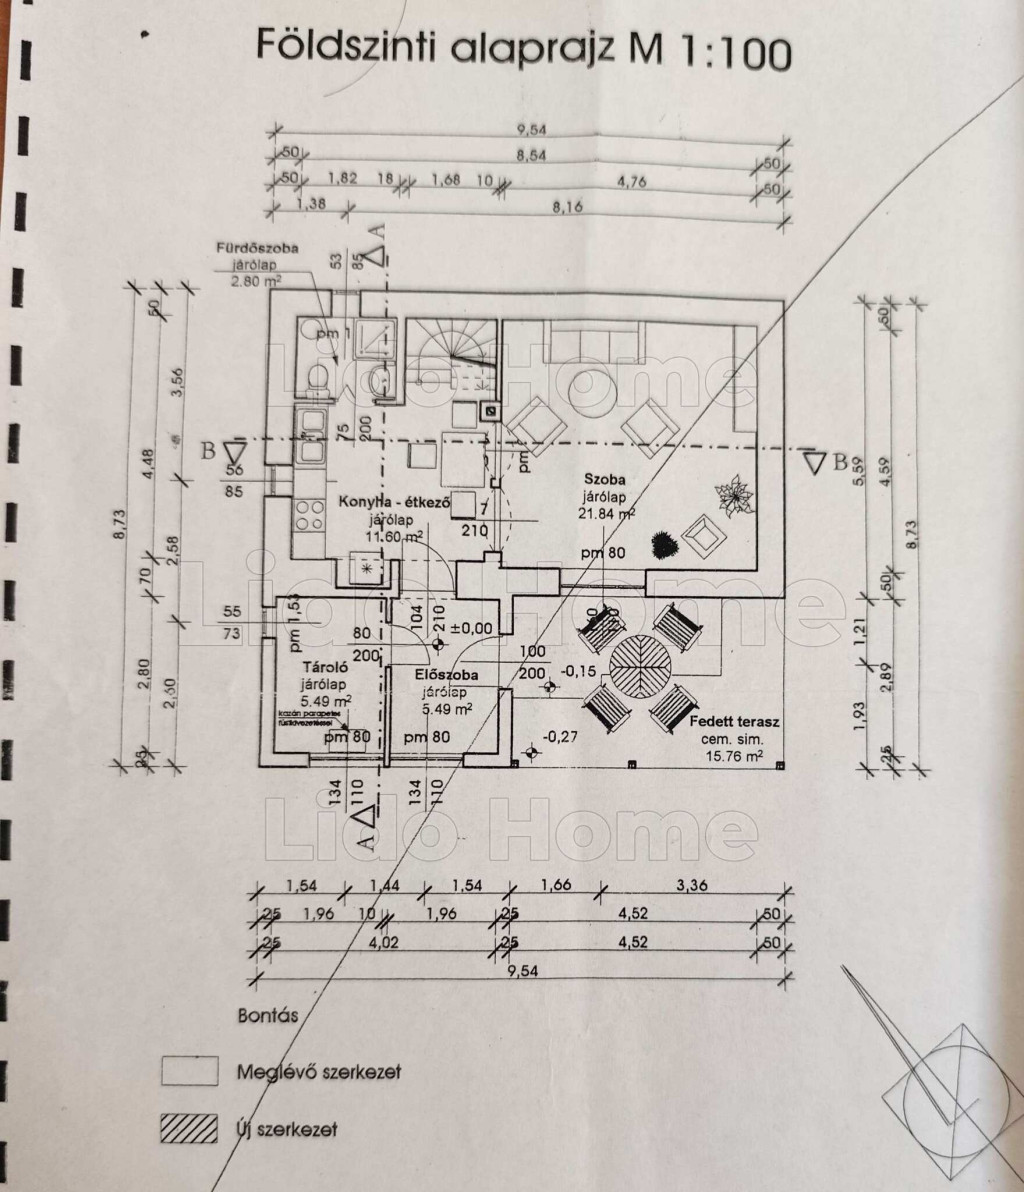 Földszinti alaprajz M 1:100
9,54
50 8,54 50
50 1,82 18 1,68 10 4,76 50
1,38 8,16
A
Fürdőszoba
járólap
2.80 m²
53
85
pm 1
50
3,56
4,48
8,73
2,58
70
2,80
2,60
25
50
5,59
4,59
8,73
50
1,21
2,89
1,93
25
Lido Home
B
B
56
85
75
200
pm
Konyha - étkező
járólap
11.60 m²
210
Szoba
járólap
21.84 m²
pm 80
Lido Home
55
73
pm 1,53
104
210
±0,00
80
200
100
200
-0,15
-0,27
Tároló
járólap
5.49 m²
kazán parapetes
füstkivezetéssel
pm 80
Előszoba
járólap
5.49 m²
pm 80
Fedett terasz
cem. sim.
15.76 m²
134
110
134
110
A
Lido Home
1,54 1,44 1,54 1,66 3,36
25 1,96 10 1,96 25 4,52 50
25 4,02 25 4,52 50
9,54
Bontás
Meglévő szerkezet
Új szerkezet